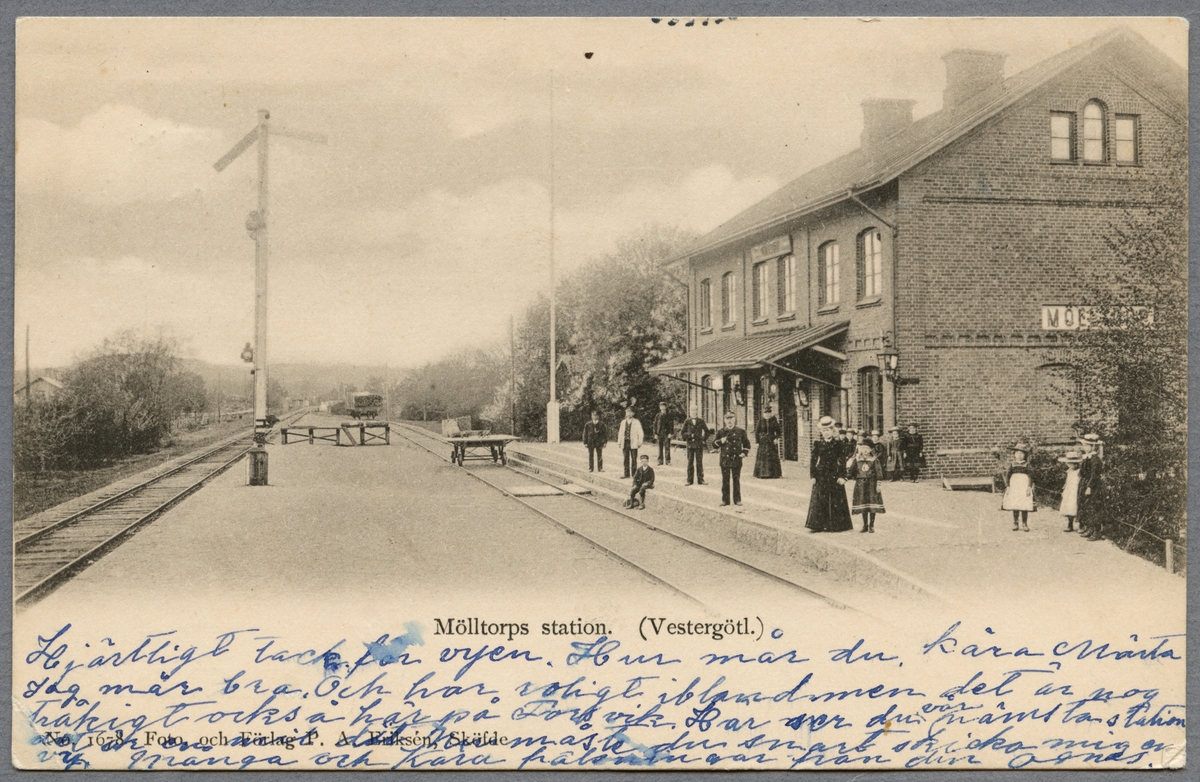 MÖLLTORP
Mölltorps station. (Vestergötl.)
Hjärtligt tack för vyen. Hur mår du, kära Märta
Jag mår bra. Och har roligt ibland men det är nog
tråkigt också här på Forsvik. Här ser du vår nämsta station
No. 1628. Foto. och Förlag P. A. Eriksén, Sköfde
måste du snart skicka mig en
vy. Många och kära hälsningar från din Agnes.